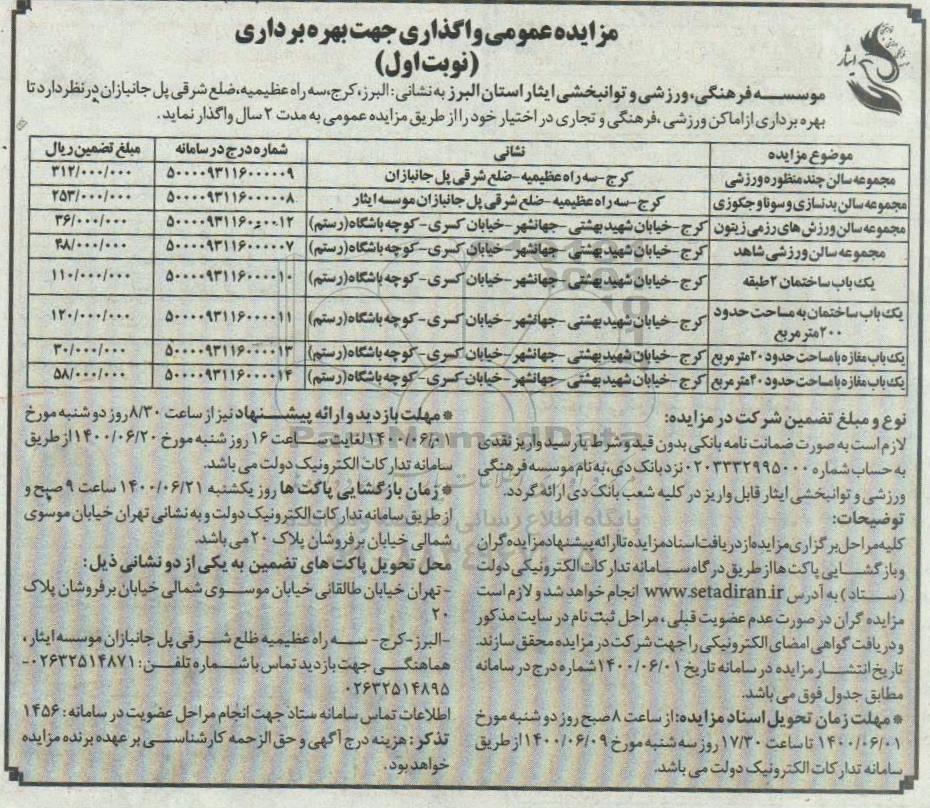 مزایده عمومی واگذاری جهت بهره برداری
(نوبت اول)
ایثار
موسسه فرهنگی، ورزشی و توانبخشی ایثار استان البرز به نشانی: البرز، کرج، سه راه عظیمیه، ضلع شرقی پل جانبازان درنظر دارد تا
بهره برداری از اماکن ورزشی، فرهنگی و تجاری در اختیار خود را از طریق مزایده عمومی به مدت ۲ سال واگذار نماید.
موضوع مزایده نشانی شماره درج در سامانه مبلغ تضمین ریال
مجموعه سالن چند منظوره ورزشی کرج-سه راه عظیمیه-ضلع شرقی پل جانبازان ۵۰۰۰۰۹۳۱۱۶۰۰۰۰۰۹ ۳۱۲/۰۰۰/۰۰۰
مجموعه سالن بدنسازی و سونا و جکوزی کرج-سه راه عظیمیه-ضلع شرقی پل جانبازان موسسه ایثار ۵۰۰۰۰۹۳۱۱۶۰۰۰۰۰۸ ۲۵۳/۰۰۰/۰۰۰
مجموعه سالن ورزش های رزمی زیتون کرج-خیابان شهید بهشتی-جهانشهر-خیابان کسری-کوچه باشگاه (رستم) ۵۰۰۰۰۹۳۱۱۶۰۰۰۰۱۲ ۳۶/۰۰۰/۰۰۰
مجموعه سالن ورزشی شاهد کرج-خیابان شهید بهشتی-جهانشهر-خیابان کسری-کوچه باشگاه (رستم) ۵۰۰۰۰۹۳۱۱۶۰۰۰۰۰۷ ۴۸/۰۰۰/۰۰۰
یک باب ساختمان ۲ طبقه کرج-خیابان شهید بهشتی-جهانشهر-خیابان کسری-کوچه باشگاه (رستم) ۵۰۰۰۰۹۳۱۱۶۰۰۰۰۱۰ ۱۱۰/۰۰۰/۰۰۰
یک باب ساختمان به مساحت حدود ۲۰۰ متر مربع کرج-خیابان شهید بهشتی-جهانشهر-خیابان کسری-کوچه باشگاه (رستم) ۵۰۰۰۰۹۳۱۱۶۰۰۰۰۱۱ ۱۲۰/۰۰۰/۰۰۰
یک باب مغازه با مساحت حدود ۲۰ متر مربع کرج-خیابان شهید بهشتی-جهانشهر-خیابان کسری-کوچه باشگاه (رستم) ۵۰۰۰۰۹۳۱۱۶۰۰۰۰۱۳ ۳۰/۰۰۰/۰۰۰
یک باب مغازه با مساحت حدود ۴۰ متر مربع کرج-خیابان شهید بهشتی-جهانشهر-خیابان کسری-کوچه باشگاه (رستم) ۵۰۰۰۰۹۳۱۱۶۰۰۰۰۱۴ ۵۸/۰۰۰/۰۰۰
نوع و مبلغ تضمین شرکت در مزایده:
لازم است به صورت ضمانت نامه بانکی بدون قید و شرط یا رسید واریز نقدی
به حساب شماره ۰۲۰۳۳۳۲۹۹۵۰۰۰ نزد بانک دی، به نام موسسه فرهنگی
ورزشی و توانبخشی ایثار قابل واریز در کلیه شعب بانک دی ارائه گردد.
توضیحات:
کلیه مراحل برگزاری مزایده از دریافت اسناد مزایده تا ارائه پیشنهاد مزایده گران
و بازگشایی پاکت ها از طریق درگاه سامانه تدارکات الکترونیکی دولت
(ستاد) به آدرس www.setadiran.ir انجام خواهد شد و لازم است
مزایده گران در صورت عدم عضویت قبلی، مراحل ثبت نام در سایت مذکور
و دریافت گواهی امضای الکترونیکی را جهت شرکت در مزایده محقق سازند.
تاریخ انتشار مزایده در سامانه تاریخ ۱۴۰۰/۰۶/۰۱ شماره درج در سامانه
مطابق جدول فوق می باشد.
* مهلت زمان تحویل اسناد مزایده: از ساعت ۸ صبح روز دو شنبه مورخ
۱۴۰۰/۰۶/۰۱ تا ساعت ۱۷/۳۰ روز سه شنبه مورخ ۱۴۰۰/۰۶/۰۹ از طریق
سامانه تدارکات الکترونیک دولت می باشد.
* مهلت بازدید و ارائه پیشنهاد نیز از ساعت ۸/۳۰ روز دو شنبه مورخ
۱۴۰۰/۰۶/۰۱ لغایت ساعت ۱۶ روز شنبه مورخ ۱۴۰۰/۰۶/۲۰ از طریق
سامانه تدارکات الکترونیک دولت می باشد.
* زمان بازگشایی پاکت ها روز یکشنبه ۱۴۰۰/۰۶/۲۱ ساعت ۹ صبح و
از طریق سامانه تدارکات الکترونیک دولت و به نشانی تهران خیابان موسوی
شمالی خیابان بر فروشان پلاک ۲۰ می باشد.
محل تحویل پاکت های تضمین به یکی از دو نشانی ذیل:
-تهران خیابان طالقانی خیابان موسوی شمالی خیابان بر فروشان پلاک
۲۰
-البرز-کرج- سه راه عظیمیه ظلع شرقی پل جانبازان موسسه ایثار،
هماهنگی جهت بازدید تماس با شماره تلفن: ۰۲۶۳۲۵۱۴۸۷۱-
۰۲۶۳۲۵۱۴۸۹۵
اطلاعات تماس سامانه ستاد جهت انجام مراحل عضویت در سامانه: ۱۴۵۶
تذکر: هزینه درج آگهی و حق الزحمه کارشناسی بر عهده برنده مزایده
خواهد بود.